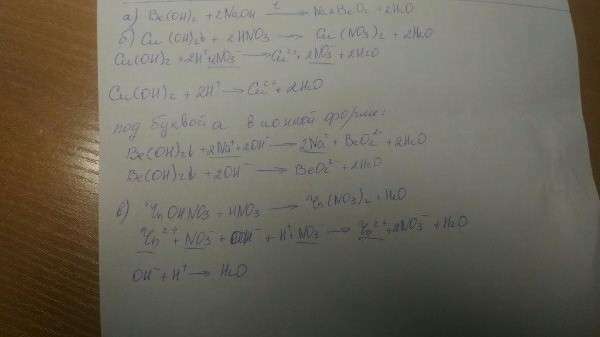 а) Be(OH)₂ + 2NaOH —t→ Na₂BeO₂ + 2H₂O
б) Cu(OH)₂↓ + 2HNO₃ → Cu(NO₃)₂ + 2H₂O
Cu(OH)₂ + 2H⁺ + 2NO₃⁻ → Cu²⁺ + 2NO₃⁻ + 2H₂O
Cu(OH)₂ + 2H⁺ → Cu²⁺ + 2H₂O
под буквой а в ионной форме:
Be(OH)₂↓ + 2Na⁺ + 2OH⁻ → 2Na⁺ + BeO₂²⁻ + 2H₂O
Be(OH)₂↓ + 2OH⁻ → BeO₂²⁻ + 2H₂O
в) ZnOHNO₃ + HNO₃ → Zn(NO₃)₂ + H₂O
Zn²⁺ + NO₃⁻ + OH⁻ + H⁺ + NO₃⁻ → Zn²⁺ + 2NO₃⁻ + H₂O
OH⁻ + H⁺ → H₂O